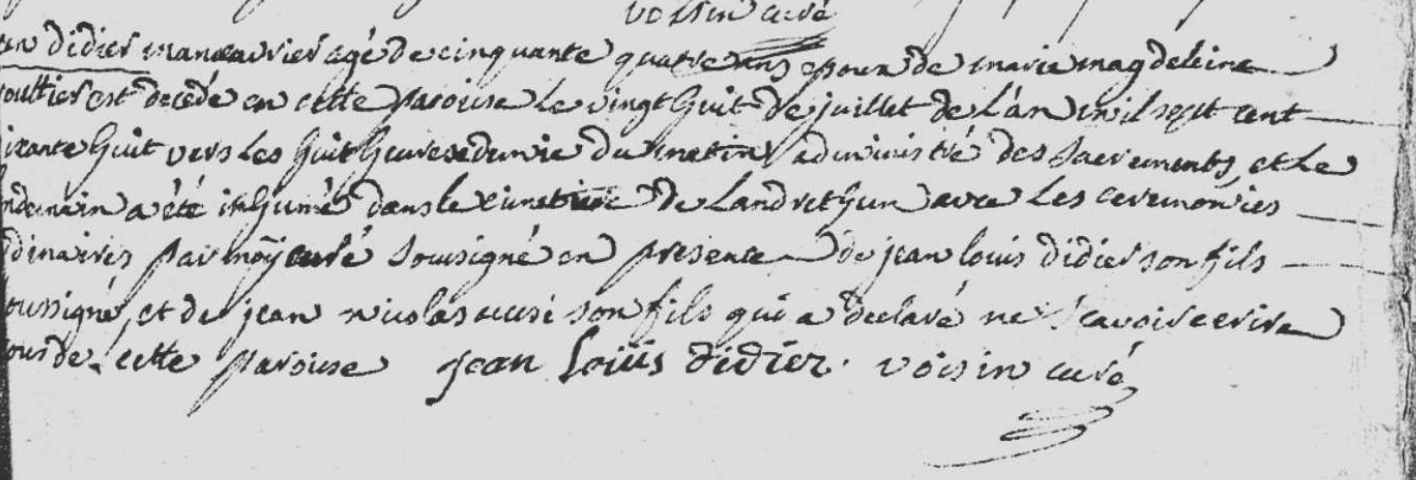 voisin curé
didier manœuvrier agé de cinquante quatre ans epoux de marie magdeleine
est decedé en cette paroisse le vingt huit de juillet de l'an mil sept cent
ixante huit vers les huit heures et demie du matin administré des sacrements, et le
ndemain a été inhumé dans le cimetiere de Landrethun avec les ceremonies
dinaires par moy curé soussigné en presence de jean louis didier son fils
oussigné, et de jean nicolas aussi son fils qui a declaré ne sçavoir ecrire
ous de cette paroisse jean louis didier. voisin curé